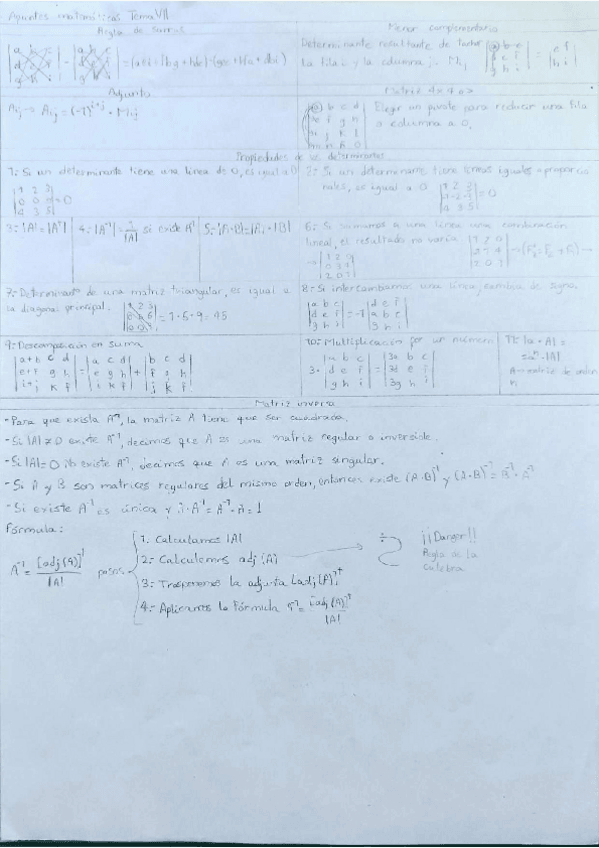 Apuntes matemáticas Tema VII
Regla de Sarrus
Menor complementario
Determinante resultante de tachar
la fila i y la columna j. Mij
Adjunto
Aij → Aij = (-1)^i+j · Mij
Matriz 4x4 o >
Elegir un pivote para reducir una fila
o columna a 0.
Propiedades de los determinantes
1.- Si un determinante tiene una línea de 0, es igual a 0
|1 2 3|
|0 0 0| = 0
|4 3 5|
2.- Si un determinante tiene líneas iguales o proporcio
nales, es igual a 0
3.- |A| = |A^t|
4.- |A^-1| = 1/|A| si existe A^-1
5.- |A·B| = |A| · |B|
6.- Si sumamos a una línea una combinación
lineal, el resultado no varía
7.- Determinante de una matriz triangular, es igual a
la diagonal principal. = 1·5·9 = 45
8.- Si intercambiamos una línea, cambia de signo.
|a b c| |d e f|
|d e f| = -1 |a b c|
|g h i| |g h i|
9.- Descomposición en suma
|a+b c d| |a c d| |b c d|
|e+f g h| = |e g h| + |f g h|
|i+j k l| |i k l| |j k l|
10.- Multiplicación por un número
|a b c| |3a b c|
3· |d e f| = |3d e f|
|g h i| |3g h i|
A → matriz de orden
n
Matriz inversa
- Para que exista A^-1, la matriz A tiene que ser cuadrada.
- Si |A| ≠ 0 existe A^-1, decimos que A es una matriz regular o inversible.
- Si |A| = 0 no existe A^-1, decimos que A es una matriz singular.
- Si A y B son matrices regulares del mismo orden, entonces existe (A·B)^-1 y (A·B)^-1 = B^-1 · A^-1
- Si existe A^-1 es única y A·A^-1 = A^-1·A = I
Fórmula:
A^-1 = [adj(A)]^t / |A|
pasos
1.- Calculamos |A|
2.- Calculamos adj(A)
3.- Trasponemos la adjunta [adj(A)]^t
4.- Aplicamos la fórmula A^-1 = [adj(A)]^t / |A|
¡¡Danger!!
Regla de la
culebra